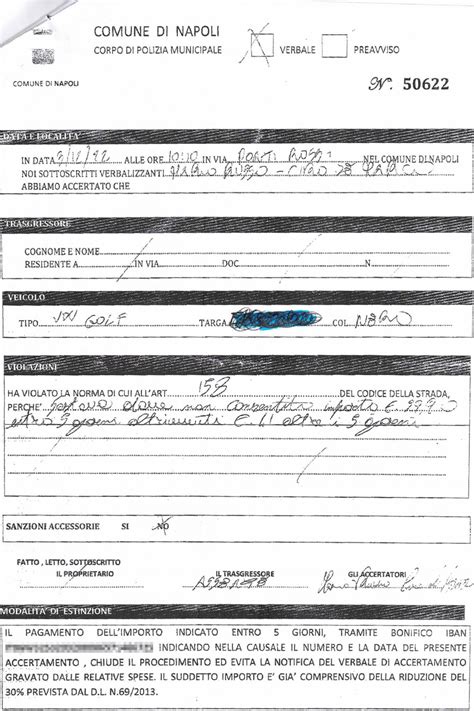 COMUNE DI NAPOLI
CORPO DI POLIZIA MUNICIPALE
VERBALE
PREAVVISO
COMUNE DI NAPOLI
N. 50622
DATA E LOCALITA'
IN DATA 3/12/22 ALLE ORE 10:10 IN VIA PONTI ROSSI NEL COMUNE DI NAPOLI
NOI SOTTOSCRITTI VERBALIZZANTI
ABBIAMO ACCERTATO CHE
TRASGRESSORE
COGNOME E NOME
RESIDENTE A IN VIA DOC N.
VEICOLO
TIPO VW GOLF TARGA COL. NERO
VIOLAZIONI
HA VIOLATO LA NORMA DI CUI ALL'ART 158 DEL CODICE DELLA STRADA,
PERCHE' sostava dove non consentito importo €
entro 5 giorni altrimenti € oltre i 5 giorni
SANZIONI ACCESSORIE SI NO
FATTO , LETTO, SOTTOSCRITTO
IL PROPRIETARIO
IL TRASGRESSORE
GLI ACCERTATORI
ASSENTE
MODALITA' DI ESTINZIONE
IL PAGAMENTO DELL'IMPORTO INDICATO ENTRO 5 GIORNI, TRAMITE BONIFICO IBAN
INDICANDO NELLA CAUSALE IL NUMERO E LA DATA DEL PRESENTE
ACCERTAMENTO , CHIUDE IL PROCEDIMENTO ED EVITA LA NOTIFICA DEL VERBALE DI ACCERTAMENTO
GRAVATO DALLE RELATIVE SPESE. IL SUDDETTO IMPORTO E' GIA' COMPRENSIVO DELLA RIDUZIONE DEL
30% PREVISTA DAL D.L. N.69/2013.